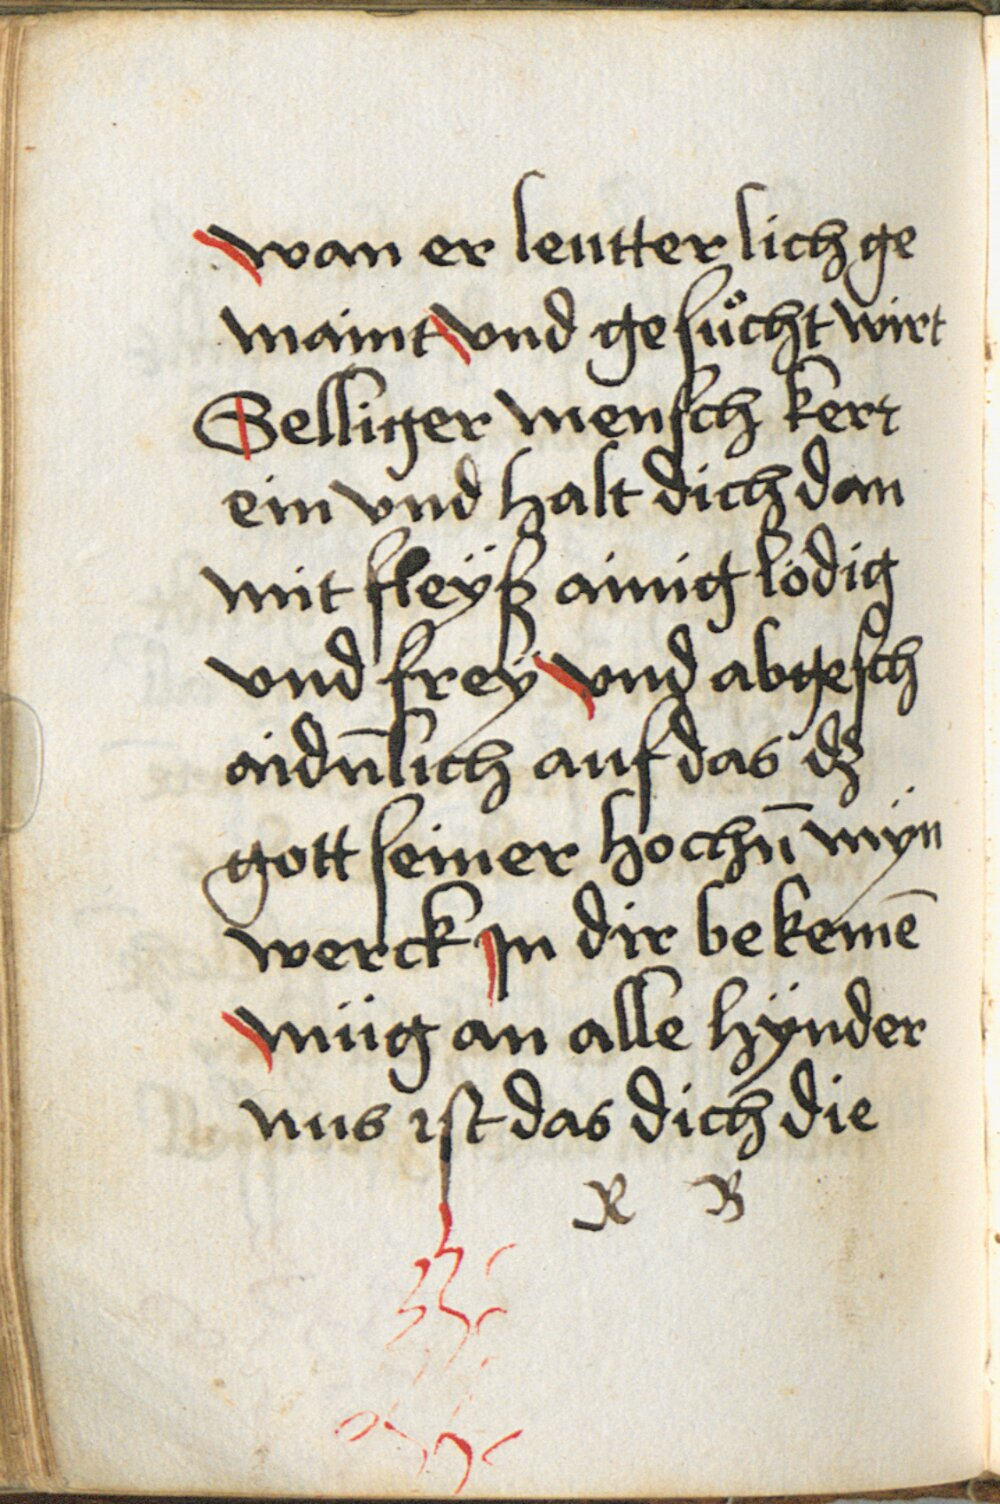 wan er leutter lich ge
maint vnd gesůcht wirt
Selliger mensch kert
ein vnd halt dich dan
mit fleÿß ainig lödig
vnd freÿ vnd abgesch
aidn̄lich auf das dz
gott seiner hochn̄ mÿn
werck In dir bekemē
müg an alle hÿnder
nus ist das dich die
R B